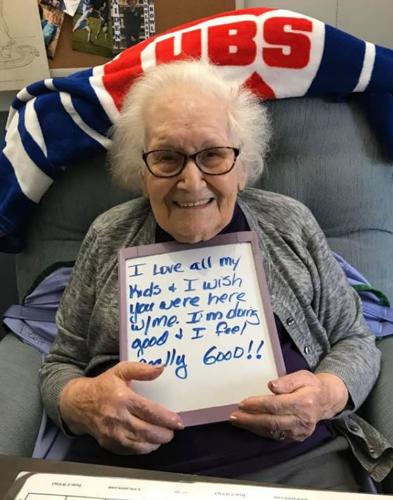 UBS
I Love all my
Kids & I wish
you were here
w/me. I'm doing
good & I feel
really GOOD!!